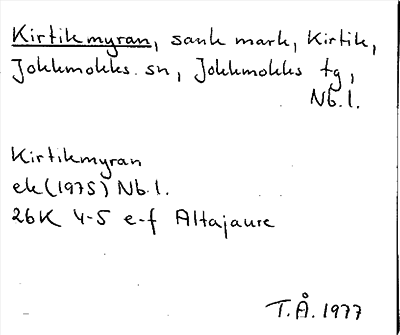 Kirtikmyran, sank mark, Kirtik,
Jokkmokks sn, Jokkmokks tg,
Nb.l.
Kirtikmyran
ek (1975) Nb.l.
26K 4-5 e-f Altajaure
T.Å. 1977